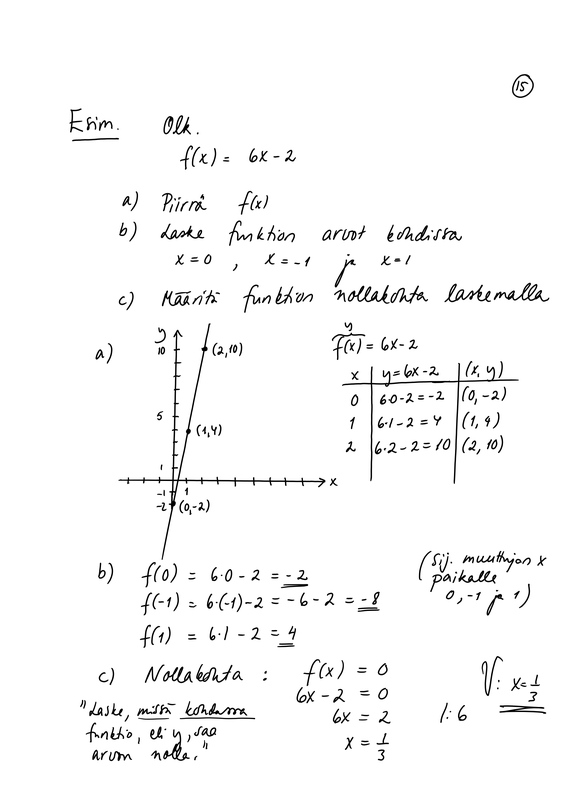 15
Esim. Olk.
f(x) = 6x - 2
a) Piirrä f(x)
b) Laske funktion arvot kohdissa
x = 0 , x = -1 ja x = 1
c) Määritä funktion nollakohta laskemalla
a)
y
10
(2,10)
5
(1,4)
1
x
-1 1
-2 (0,-2)
y
f(x) = 6x - 2
x y = 6x - 2 (x, y)
0 6·0 - 2 = -2 (0, -2)
1 6·1 - 2 = 4 (1, 4)
2 6·2 - 2 = 10 (2, 10)
b) f(0) = 6·0 - 2 = -2
f(-1) = 6·(-1) - 2 = -6 - 2 = -8
f(1) = 6·1 - 2 = 4
(Sij. muuttujan x
paikalle
0, -1 ja 1)
c) Nollakohta : f(x) = 0
6x - 2 = 0
6x = 2 |: 6
x = 1/3
V: x = 1/3
"Laske, missä kohdassa
funktio, eli y, saa
arvon nolla."